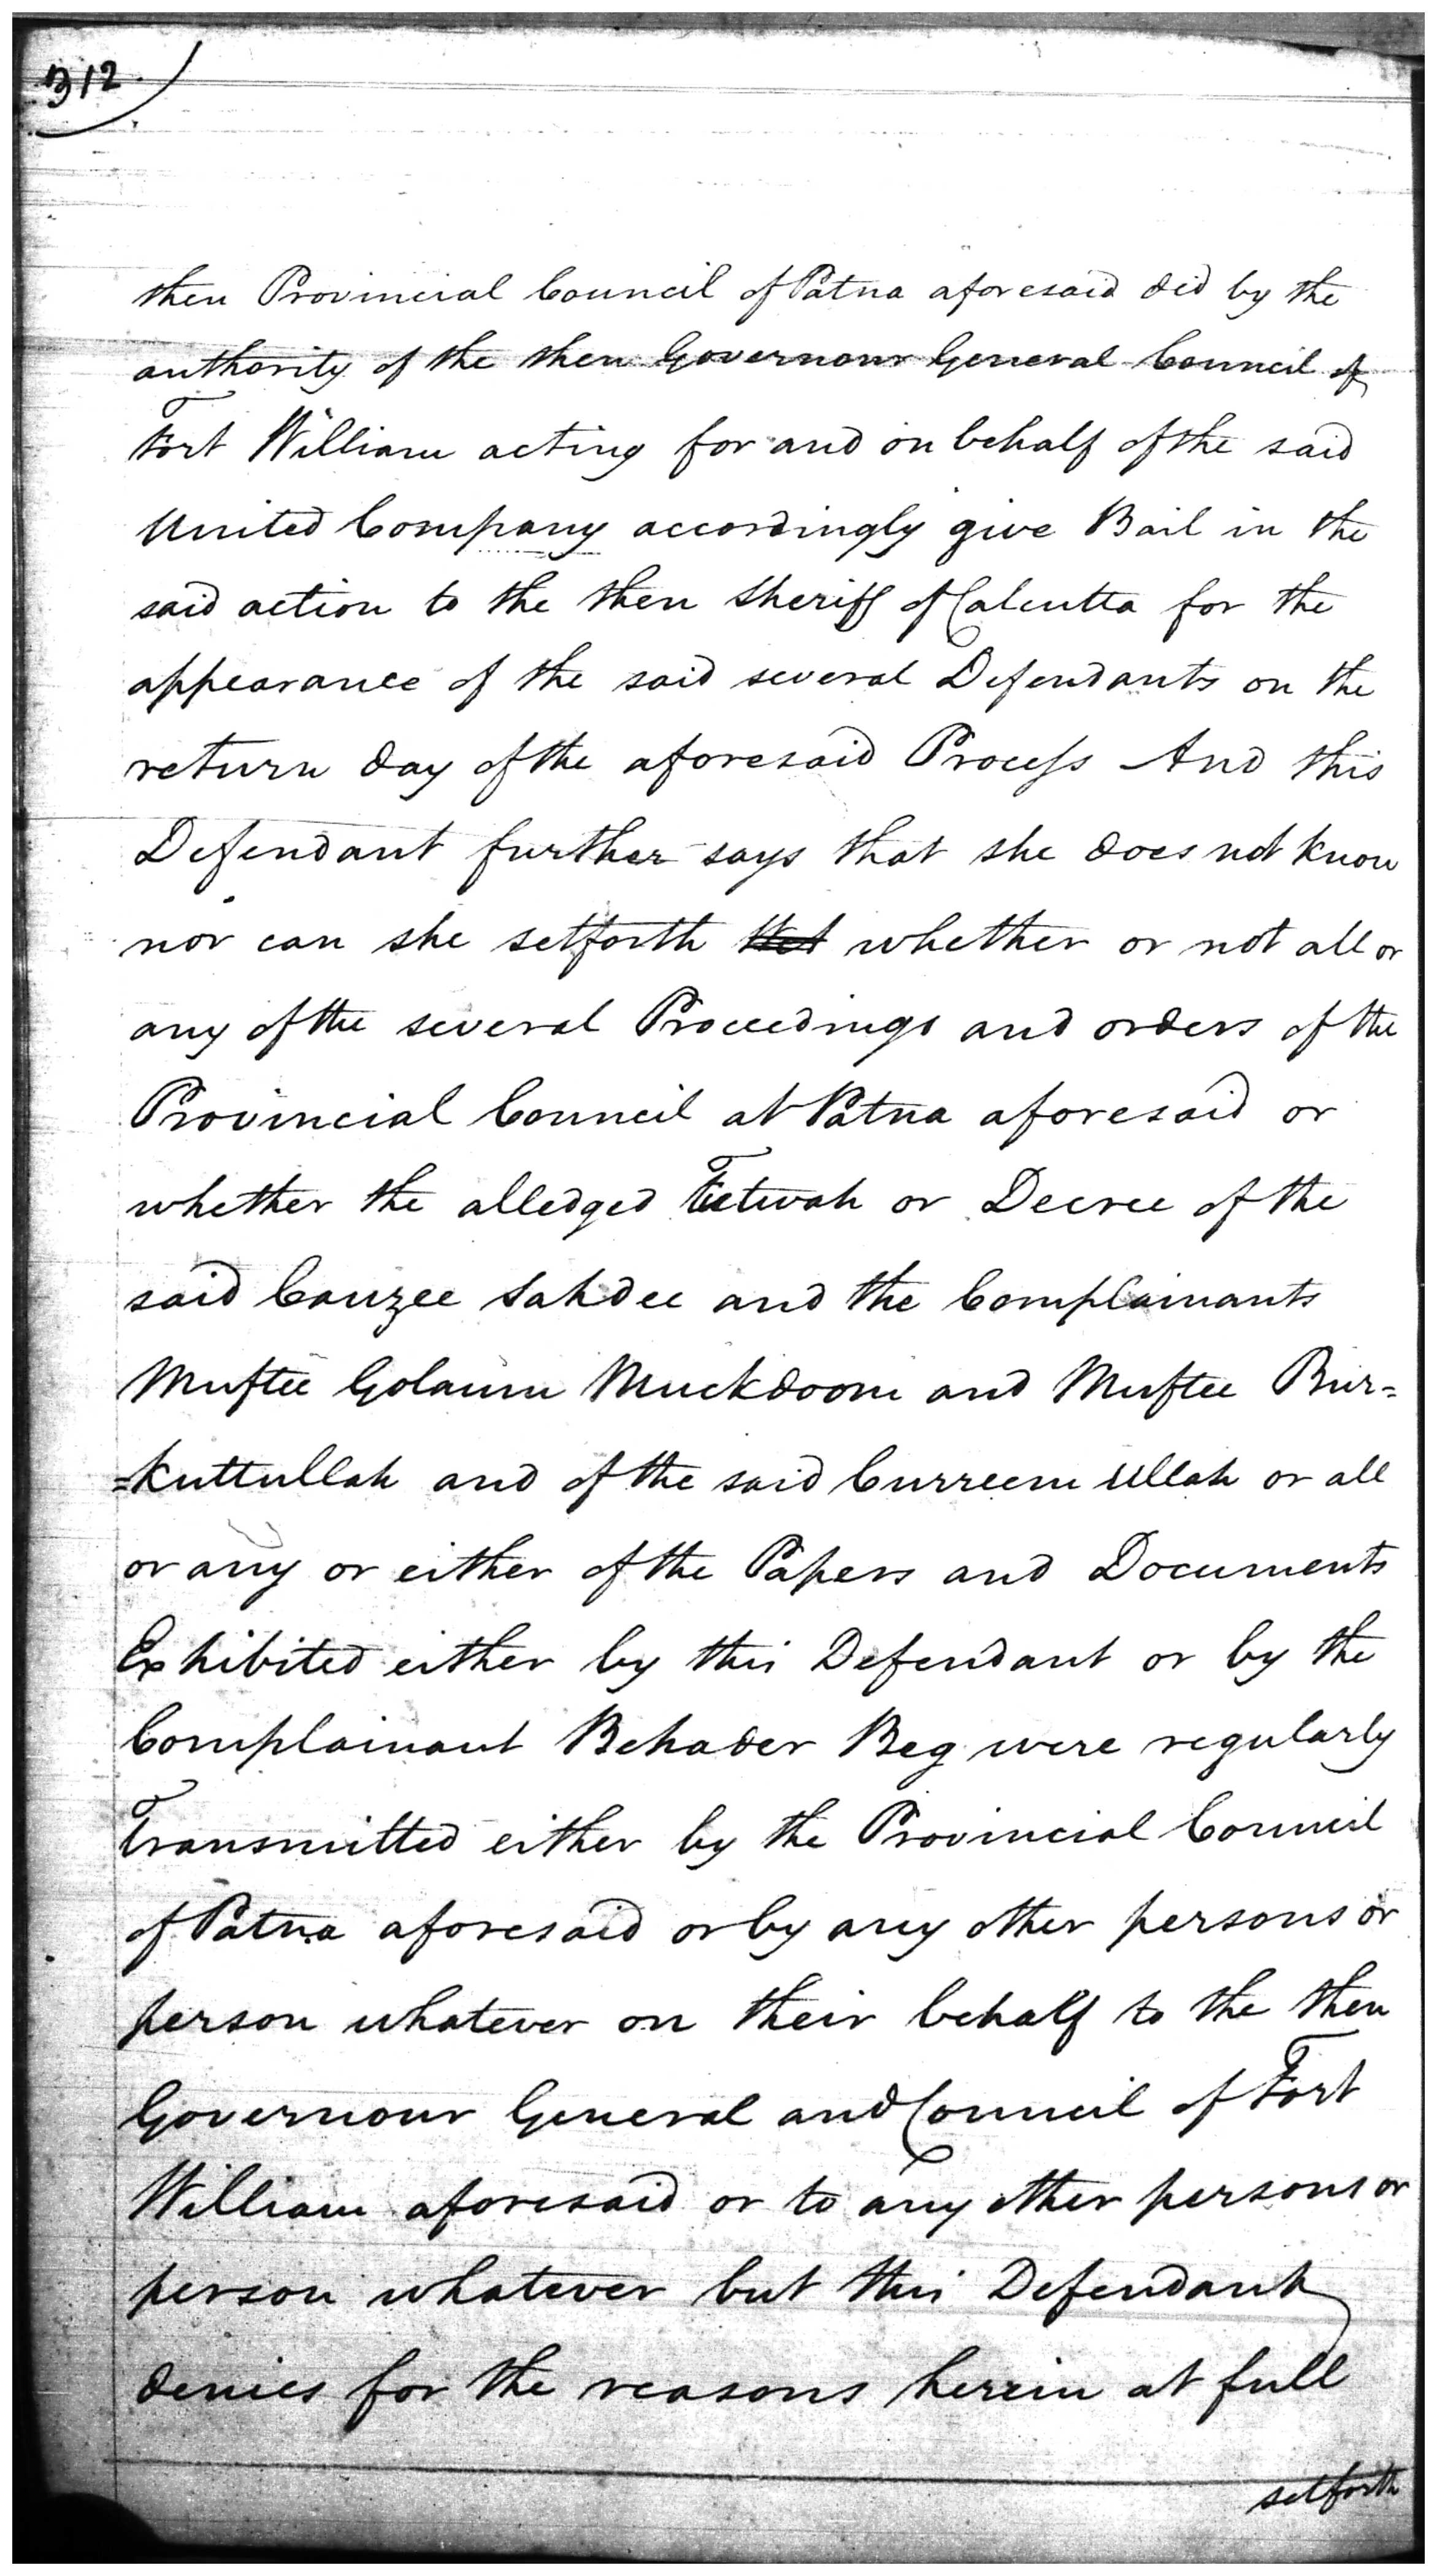 312.
then Provincial Council of Patna aforesaid did by the
authority of the then Governour General Council of
Fort William acting for and on behalf of the said
United Company accordingly give Bail in the
said action to the then Sheriff of Calcutta for the
appearance of the said several Defendants on the
return day of the aforesaid Process And this
Defendant further says that she does not know
nor can she setforth whether or not all or
any of the several Proceedings and orders of the
Provincial Council at Patna aforesaid or
whether the alledged Fetwah or Decree of the
said Cauzee Sahdee and the Complainants
Muftee Golaum Muckdoom and Muftee Bur=
=kuttullah and of the said Curreem Ullah or all
or any or either of the Papers and Documents
Exhibited either by this Defendant or by the
Complainant Behader Beg were regularly
Transmitted either by the Provincial Council
of Patna aforesaid or by any other persons or
person whatever on their behalf to the then
Governour General and Council of Fort
William aforesaid or to any other persons or
person whatever but this Defendant
denies for the reasons herein at full
setforth